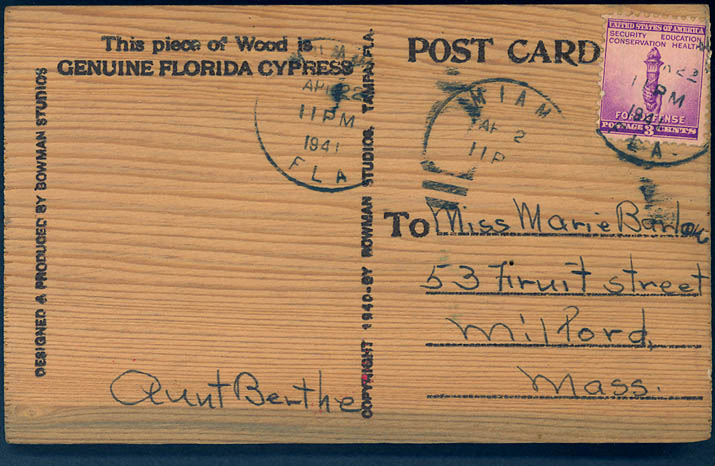 This piece of Wood is
GENUINE FLORIDA CYPRESS
DESIGNED & PRODUCED BY BOWMAN STUDIOS
COPYRIGHT 1940-BY BOWMAN STUDIOS, TAMPA, FLA.
APR 22
11 PM
1941
FLA
POST CARD
MIAM
AP 2
11 P
UNITED STATES OF AMERICA
SECURITY EDUCATION
CONSERVATION HEALTH
PM
1941
FOR DEFENSE
POSTAGE 3 CENTS
LA
To Miss Marie Barlow
53 Firuit street
Milford,
Mass.
Aunt Berthe